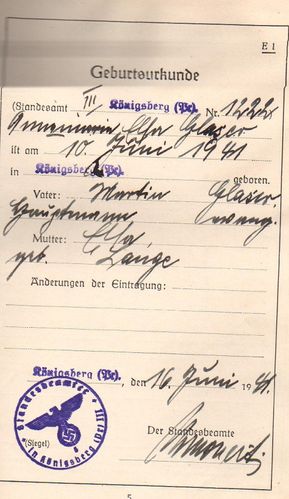 E 1
Geburtsurkunde
(Standesamt III Königsberg (Pr). Nr. 1222)
Annemarie Elsa Glaser
ist am 10. Juni 1941
in Königsberg (Pr). geboren.
Vater: Martin Glaser,
Hauptmann evang.
Mutter: Elsa,
geb. Lange
Änderungen der Eintragung:
Königsberg (Pr)., den 16. Juni 1941.
Der Standesbeamte
(Siegel)
Standesbeamter III
in Königsberg (Pr)
5